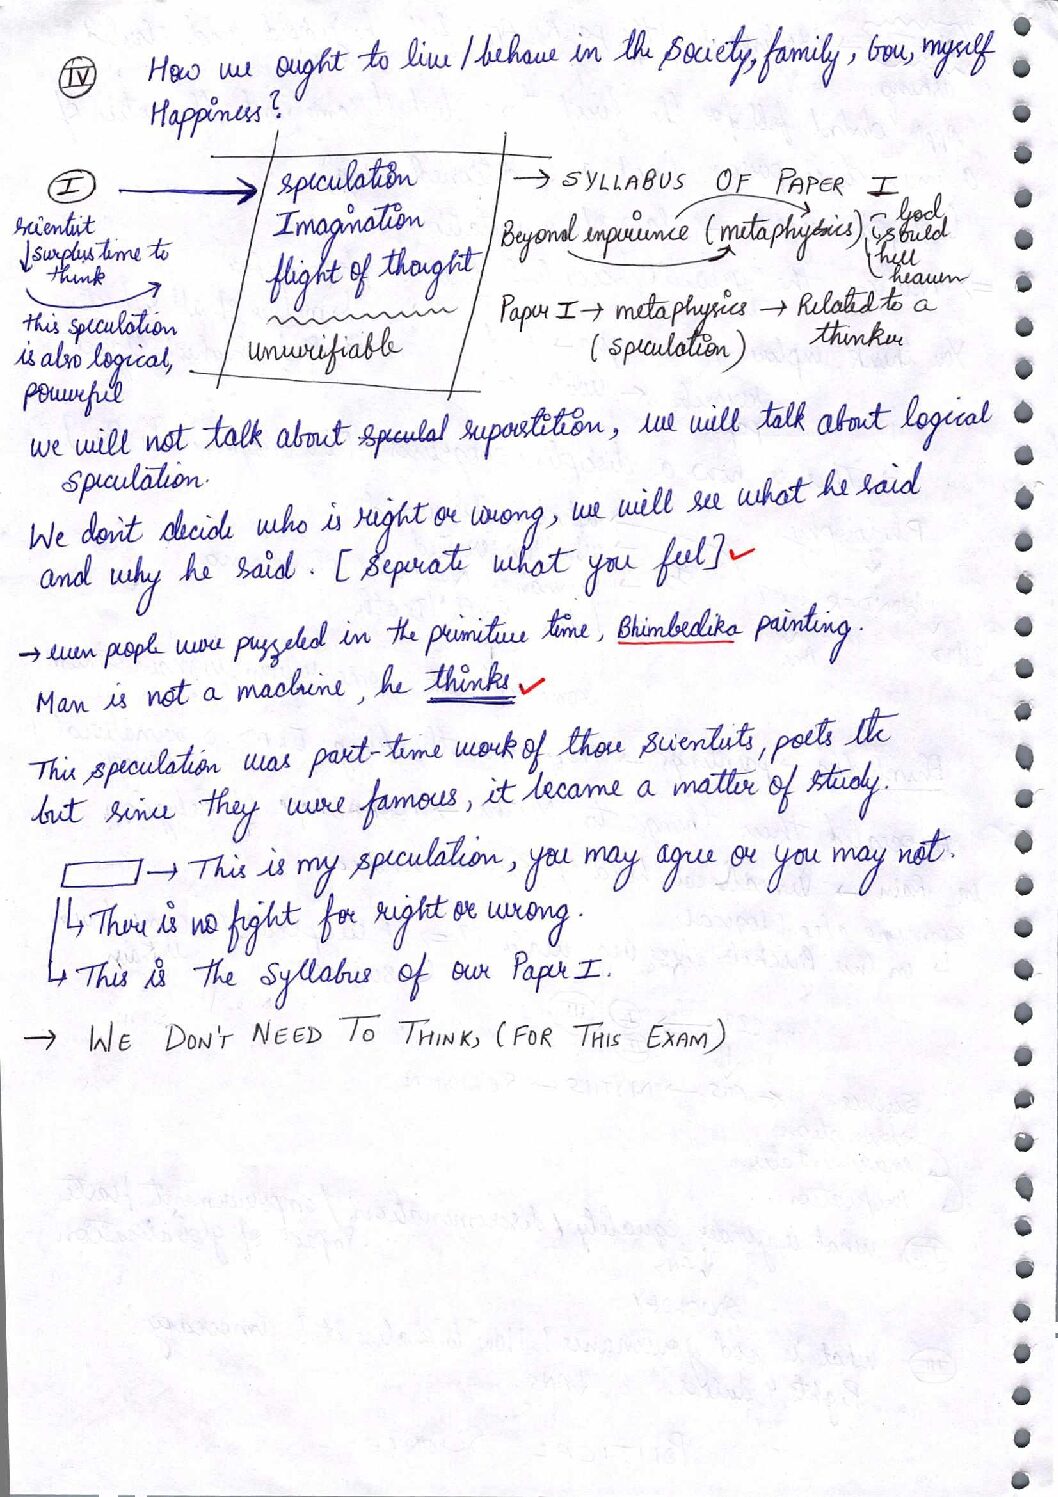 IV How we ought to live/behave in the society, family, Gov, myself
Happiness?
I →
speculation
Imagination
flight of thought
unverifiable
→ SYLLABUS OF PAPER I
Beyond experience (metaphysics)
God
sould
hell
heaven
Paper I → metaphysics → Related to a
(speculation) thinker
scientist
↓ surplus time to
think
this speculation
is also logical,
powerful
we will not talk about speculal superstition, we will talk about logical
speculation.
We don't decide who is right or wrong, we will see what he said
and why he said. [Seperate what you feel] ✓
→ even people were puzzeled in the primitive time, Bhimbedika painting.
Man is not a machine, he thinks ✓
This speculation was part-time work of those scientists, poets etc
but since they were famous, it became a matter of study.
→ This is my speculation, you may agree or you may not.
↳ There is no fight for right or wrong.
↳ This is the syllabus of our Paper I.
→ WE DON'T NEED TO THINK, (FOR THIS EXAM)